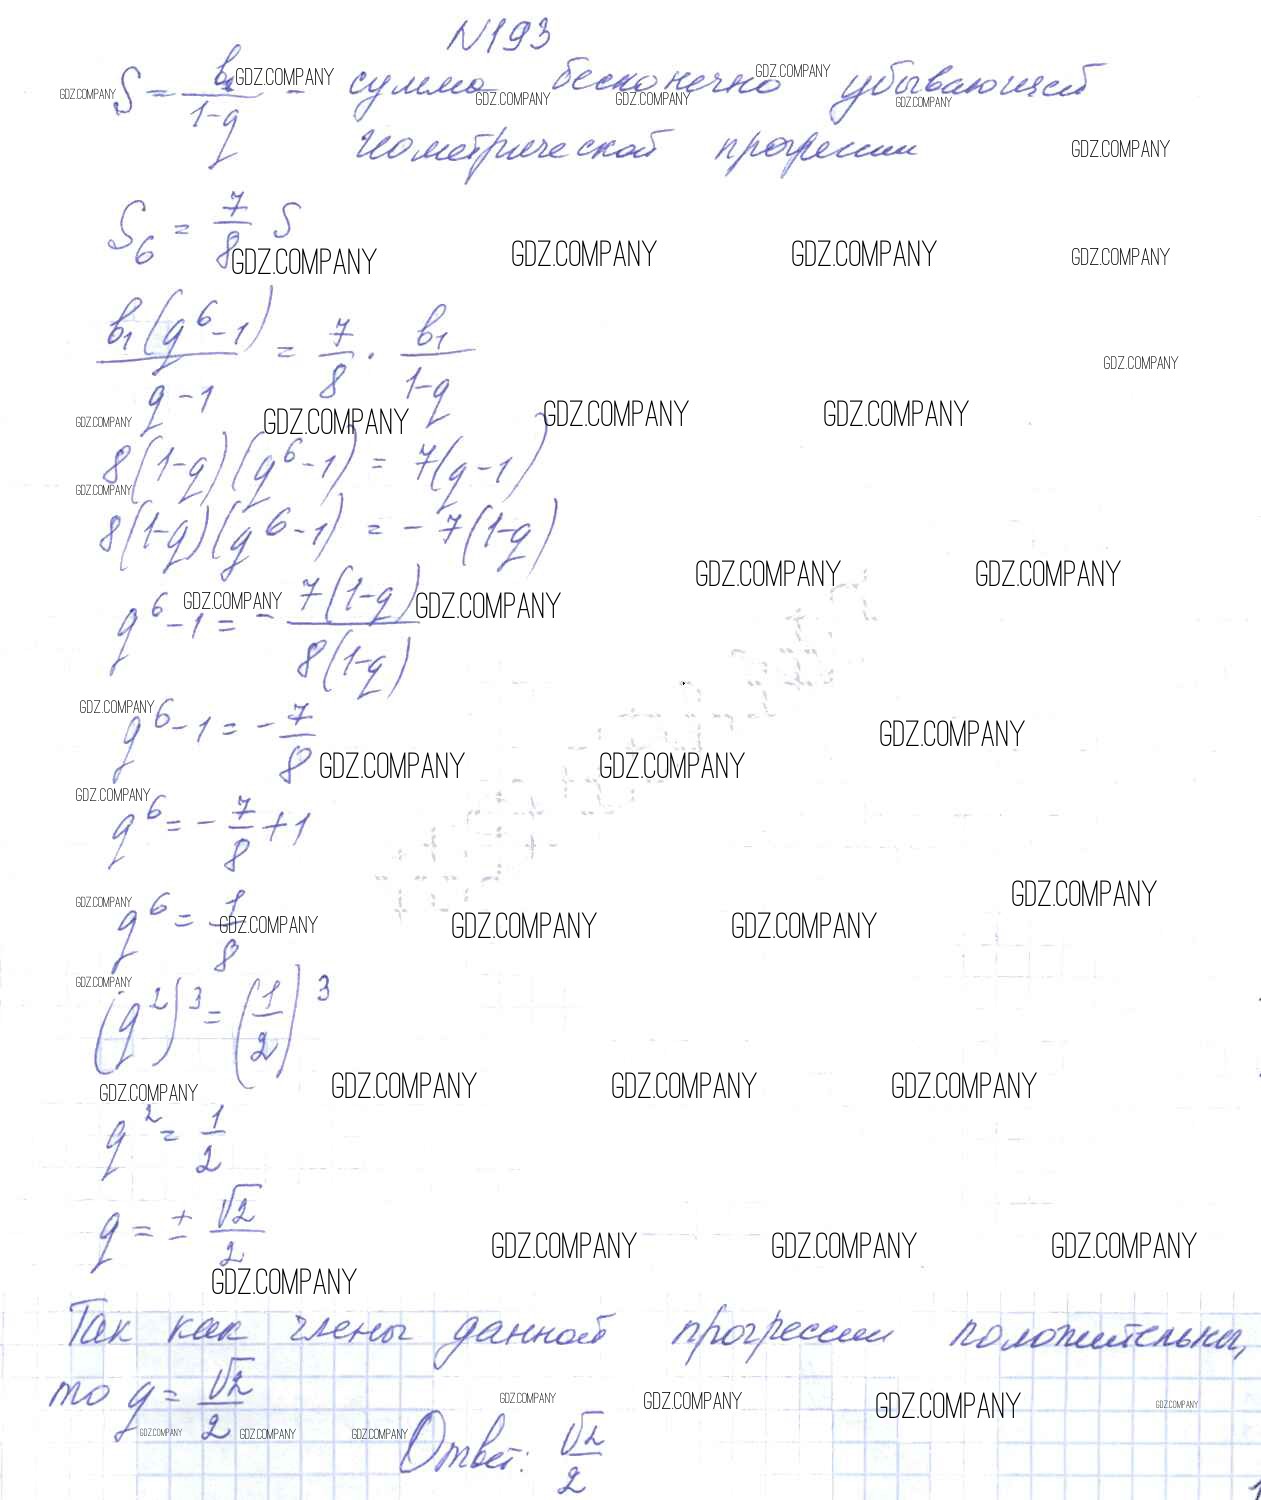 N193
S = b₁/(1-q) - сумма бесконечно убывающей
геометрической прогрессии
S₆ = 7/8 S
b₁(q⁶-1)/(q-1) = 7/8 · b₁/(1-q)
8(1-q)(q⁶-1) = 7(q-1)
8(1-q)(q⁶-1) = -7(1-q)
q⁶-1 = - 7(1-q)/8(1-q)
q⁶-1 = - 7/8
q⁶ = - 7/8 + 1
q⁶ = 1/8
(q²)³ = (1/2)³
q² = 1/2
q = ± √2/2
Так как члены данной прогрессии положительны,
то q = √2/2
Ответ: √2/2
GDZ.COMPANY